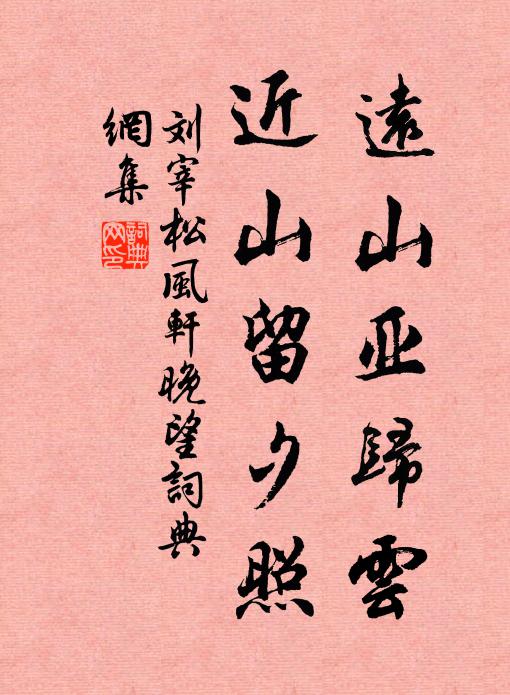 遠山亚歸雲
近山留夕照
刘宰松風軒晚望詞典
網集
詞典
网印